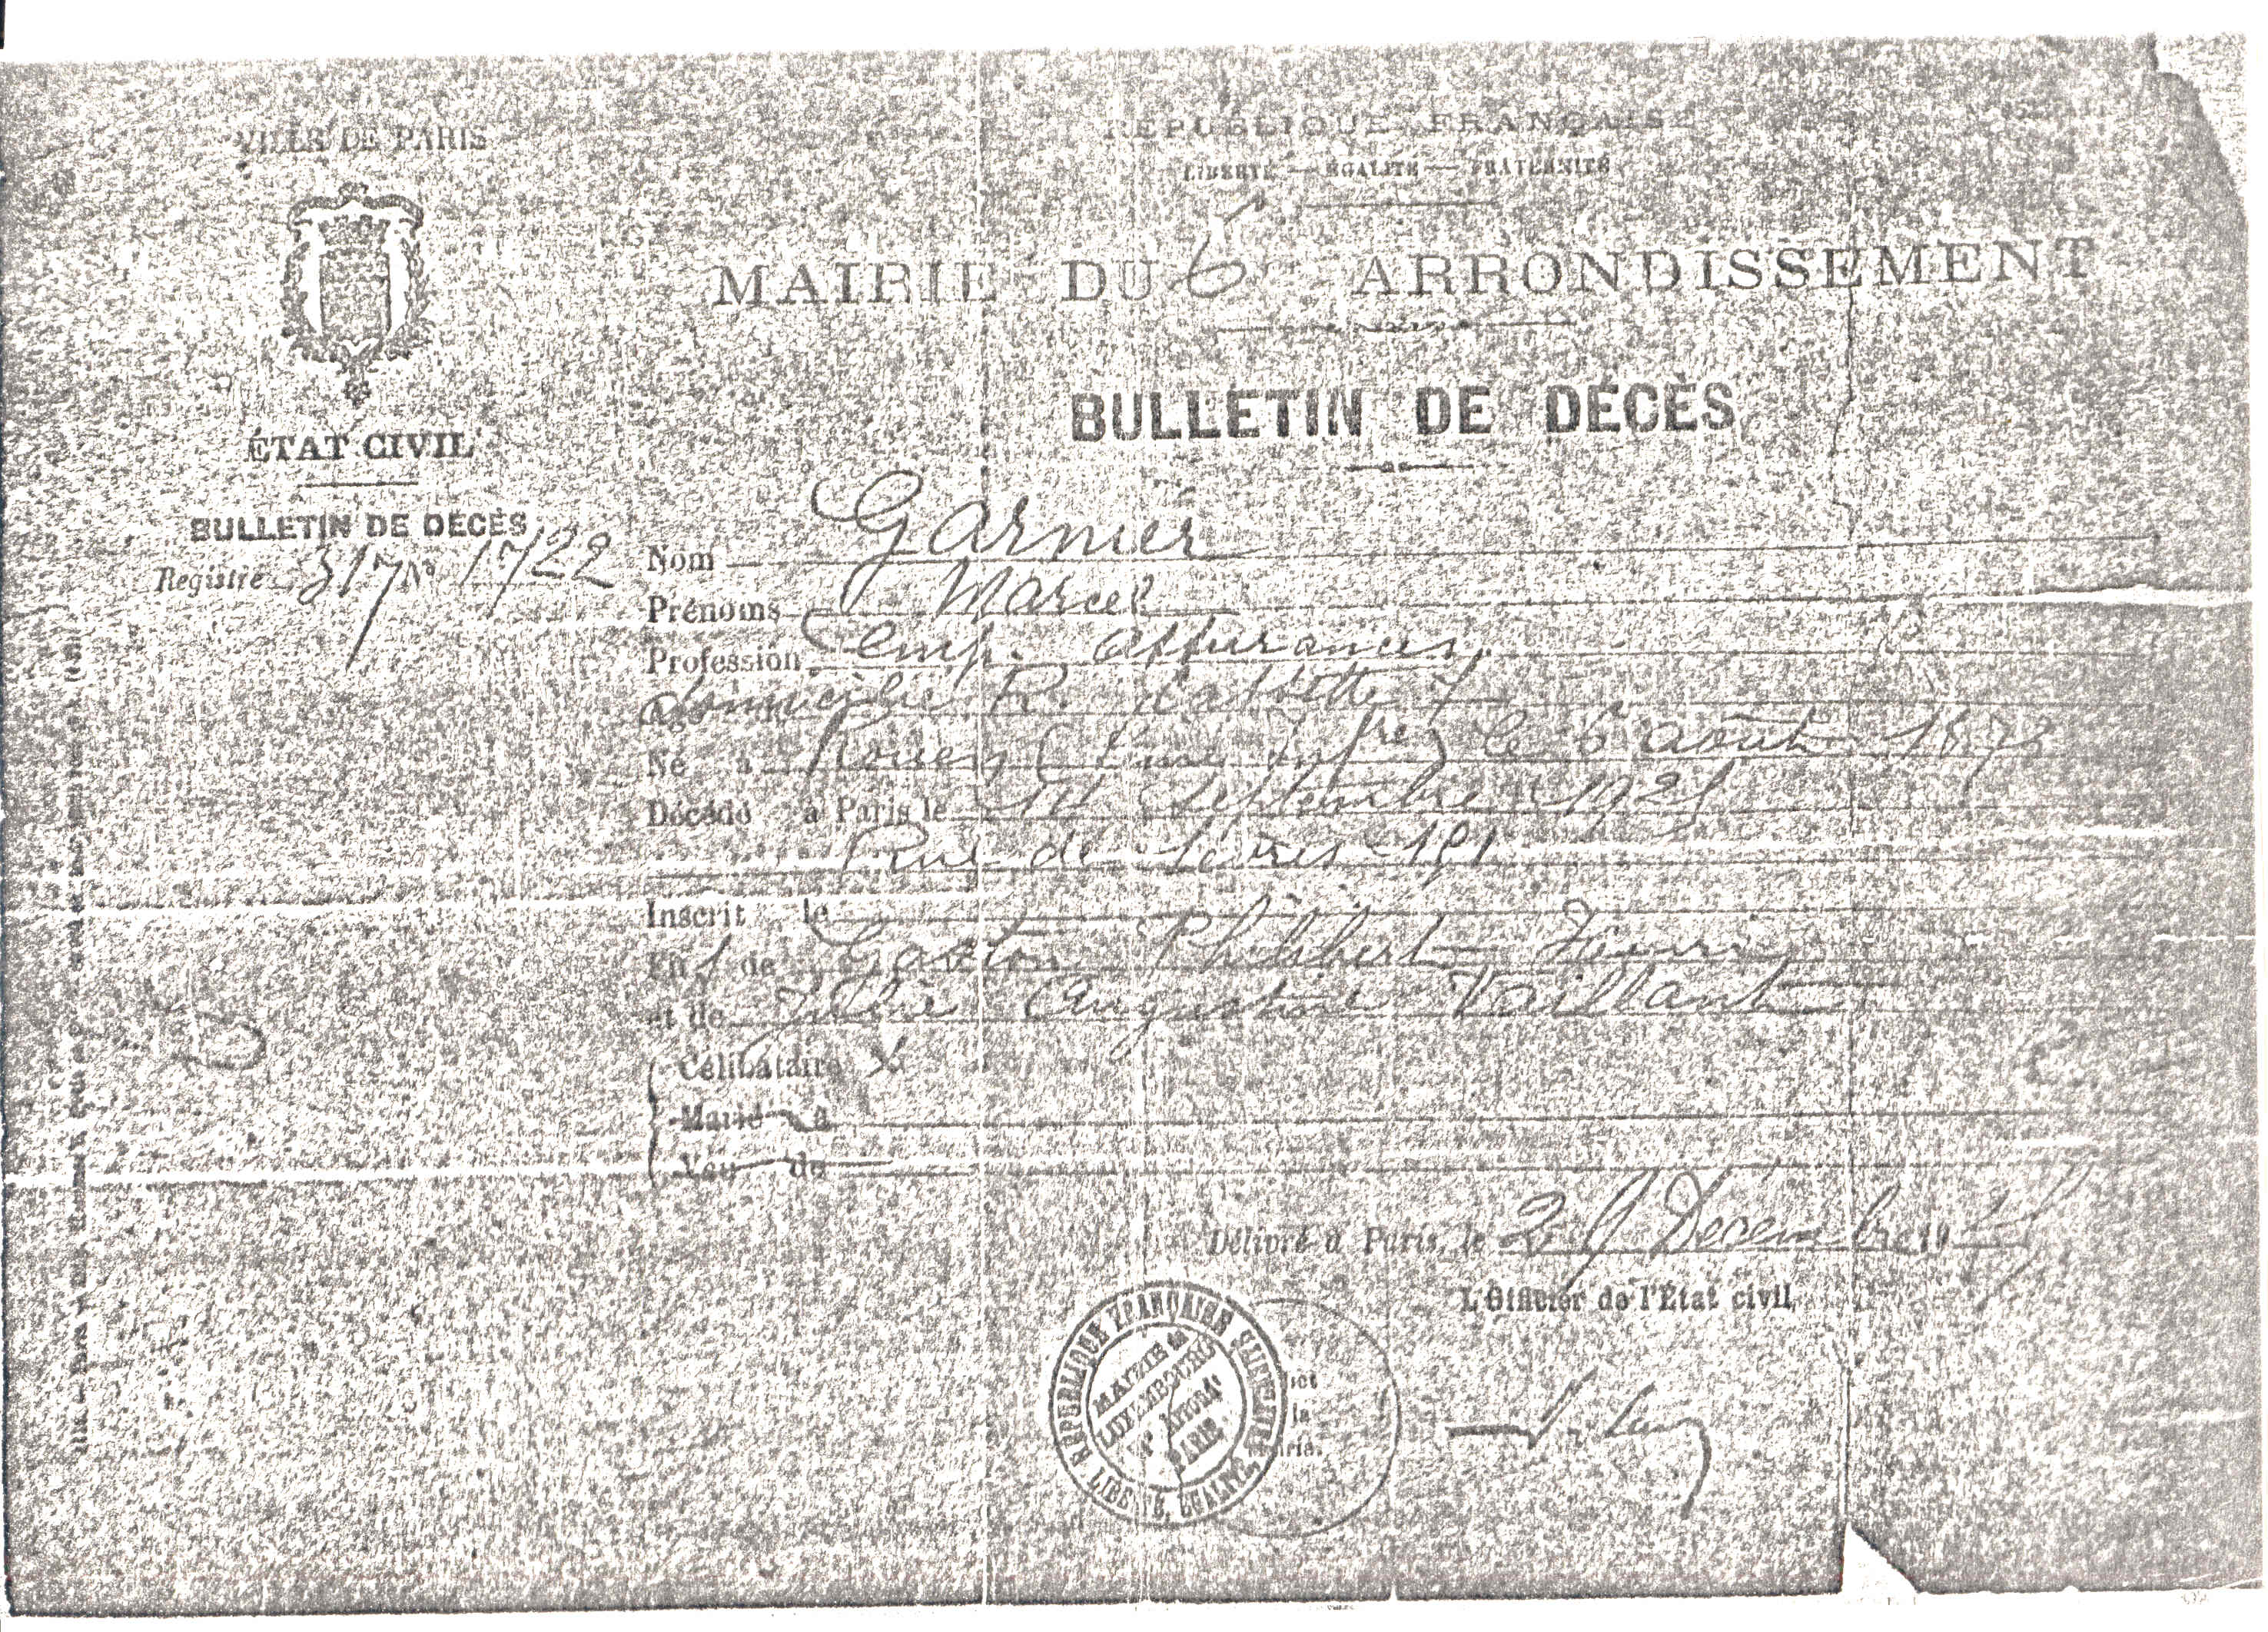 VILLE DE PARIS
ÉTAT CIVIL
BULLETIN DE DÉCÈS
Registre 317 No 1722
RÉPUBLIQUE FRANÇAISE
LIBERTÉ — ÉGALITÉ — FRATERNITÉ
MAIRIE DU 6e ARRONDISSEMENT
BULLETIN DE DÉCÈS
Nom Garnier
Prénoms Marcel
Profession emp. assurances
domicilié R.
Né à Rouen (Seine Infre) le 6 août 187
Décédé à Paris le septembre 192
Rue de Sèvres 1
Inscrit le
Fils de Gaston Philibert
et de Julie Augustine Vaillant
Célibataire X
Marié à
Veuf de
Délivré à Paris, le 29 Décembre 19
L'Officier de l'État civil,
RÉPUBLIQUE FRANÇAISE
LIBERTÉ, ÉGALITÉ
MAIRIE du
LUXEMBOURG
PARIS